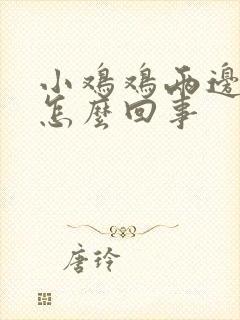 小鸡鸡两邊
怎麼回事
唐玲